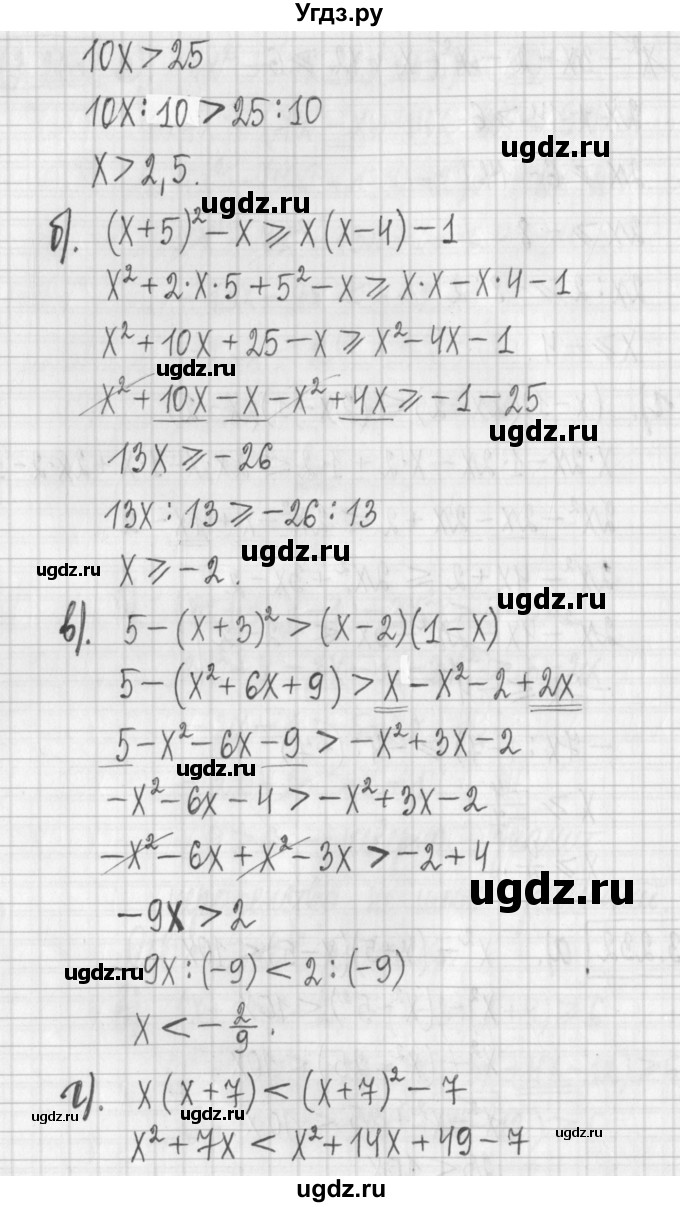 Угдз.ру
10x > 25
10x : 10 > 25 : 10
ugdz.ru
x > 2,5.
ugdz.ru
б). (x+5)² − x ⩾ x(x−4) − 1
x² + 2·x·5 + 5² − x ⩾ x·x − x·4 − 1
x² + 10x + 25 − x ⩾ x² − 4x − 1
ugdz.ru
x² + 10x − x − x² + 4x ⩾ −1 − 25
ugdz.ru
13x ⩾ −26
13x : 13 ⩾ −26 : 13
ugdz.ru
ugdz.ru
x ⩾ −2.
ugdz.ru
в). 5 − (x+3)² > (x−2)(1−x)
5 − (x² + 6x + 9) > x − x² − 2 + 2x
5 − x² − 6x − 9 > −x² + 3x − 2
ugdz.ru
−x² − 6x − 4 > −x² + 3x − 2
−x² − 6x + x² − 3x > −2 + 4
ugdz.ru
−9x > 2
ugdz.ru
−9x : (−9) < 2 : (−9)
x < −2/9.
г). x(x+7) < (x+7)² − 7
ugdz.ru
ugdz.ru
x² + 7x < x² + 14x + 49 − 7
ugdz.ru
ugdz.ru